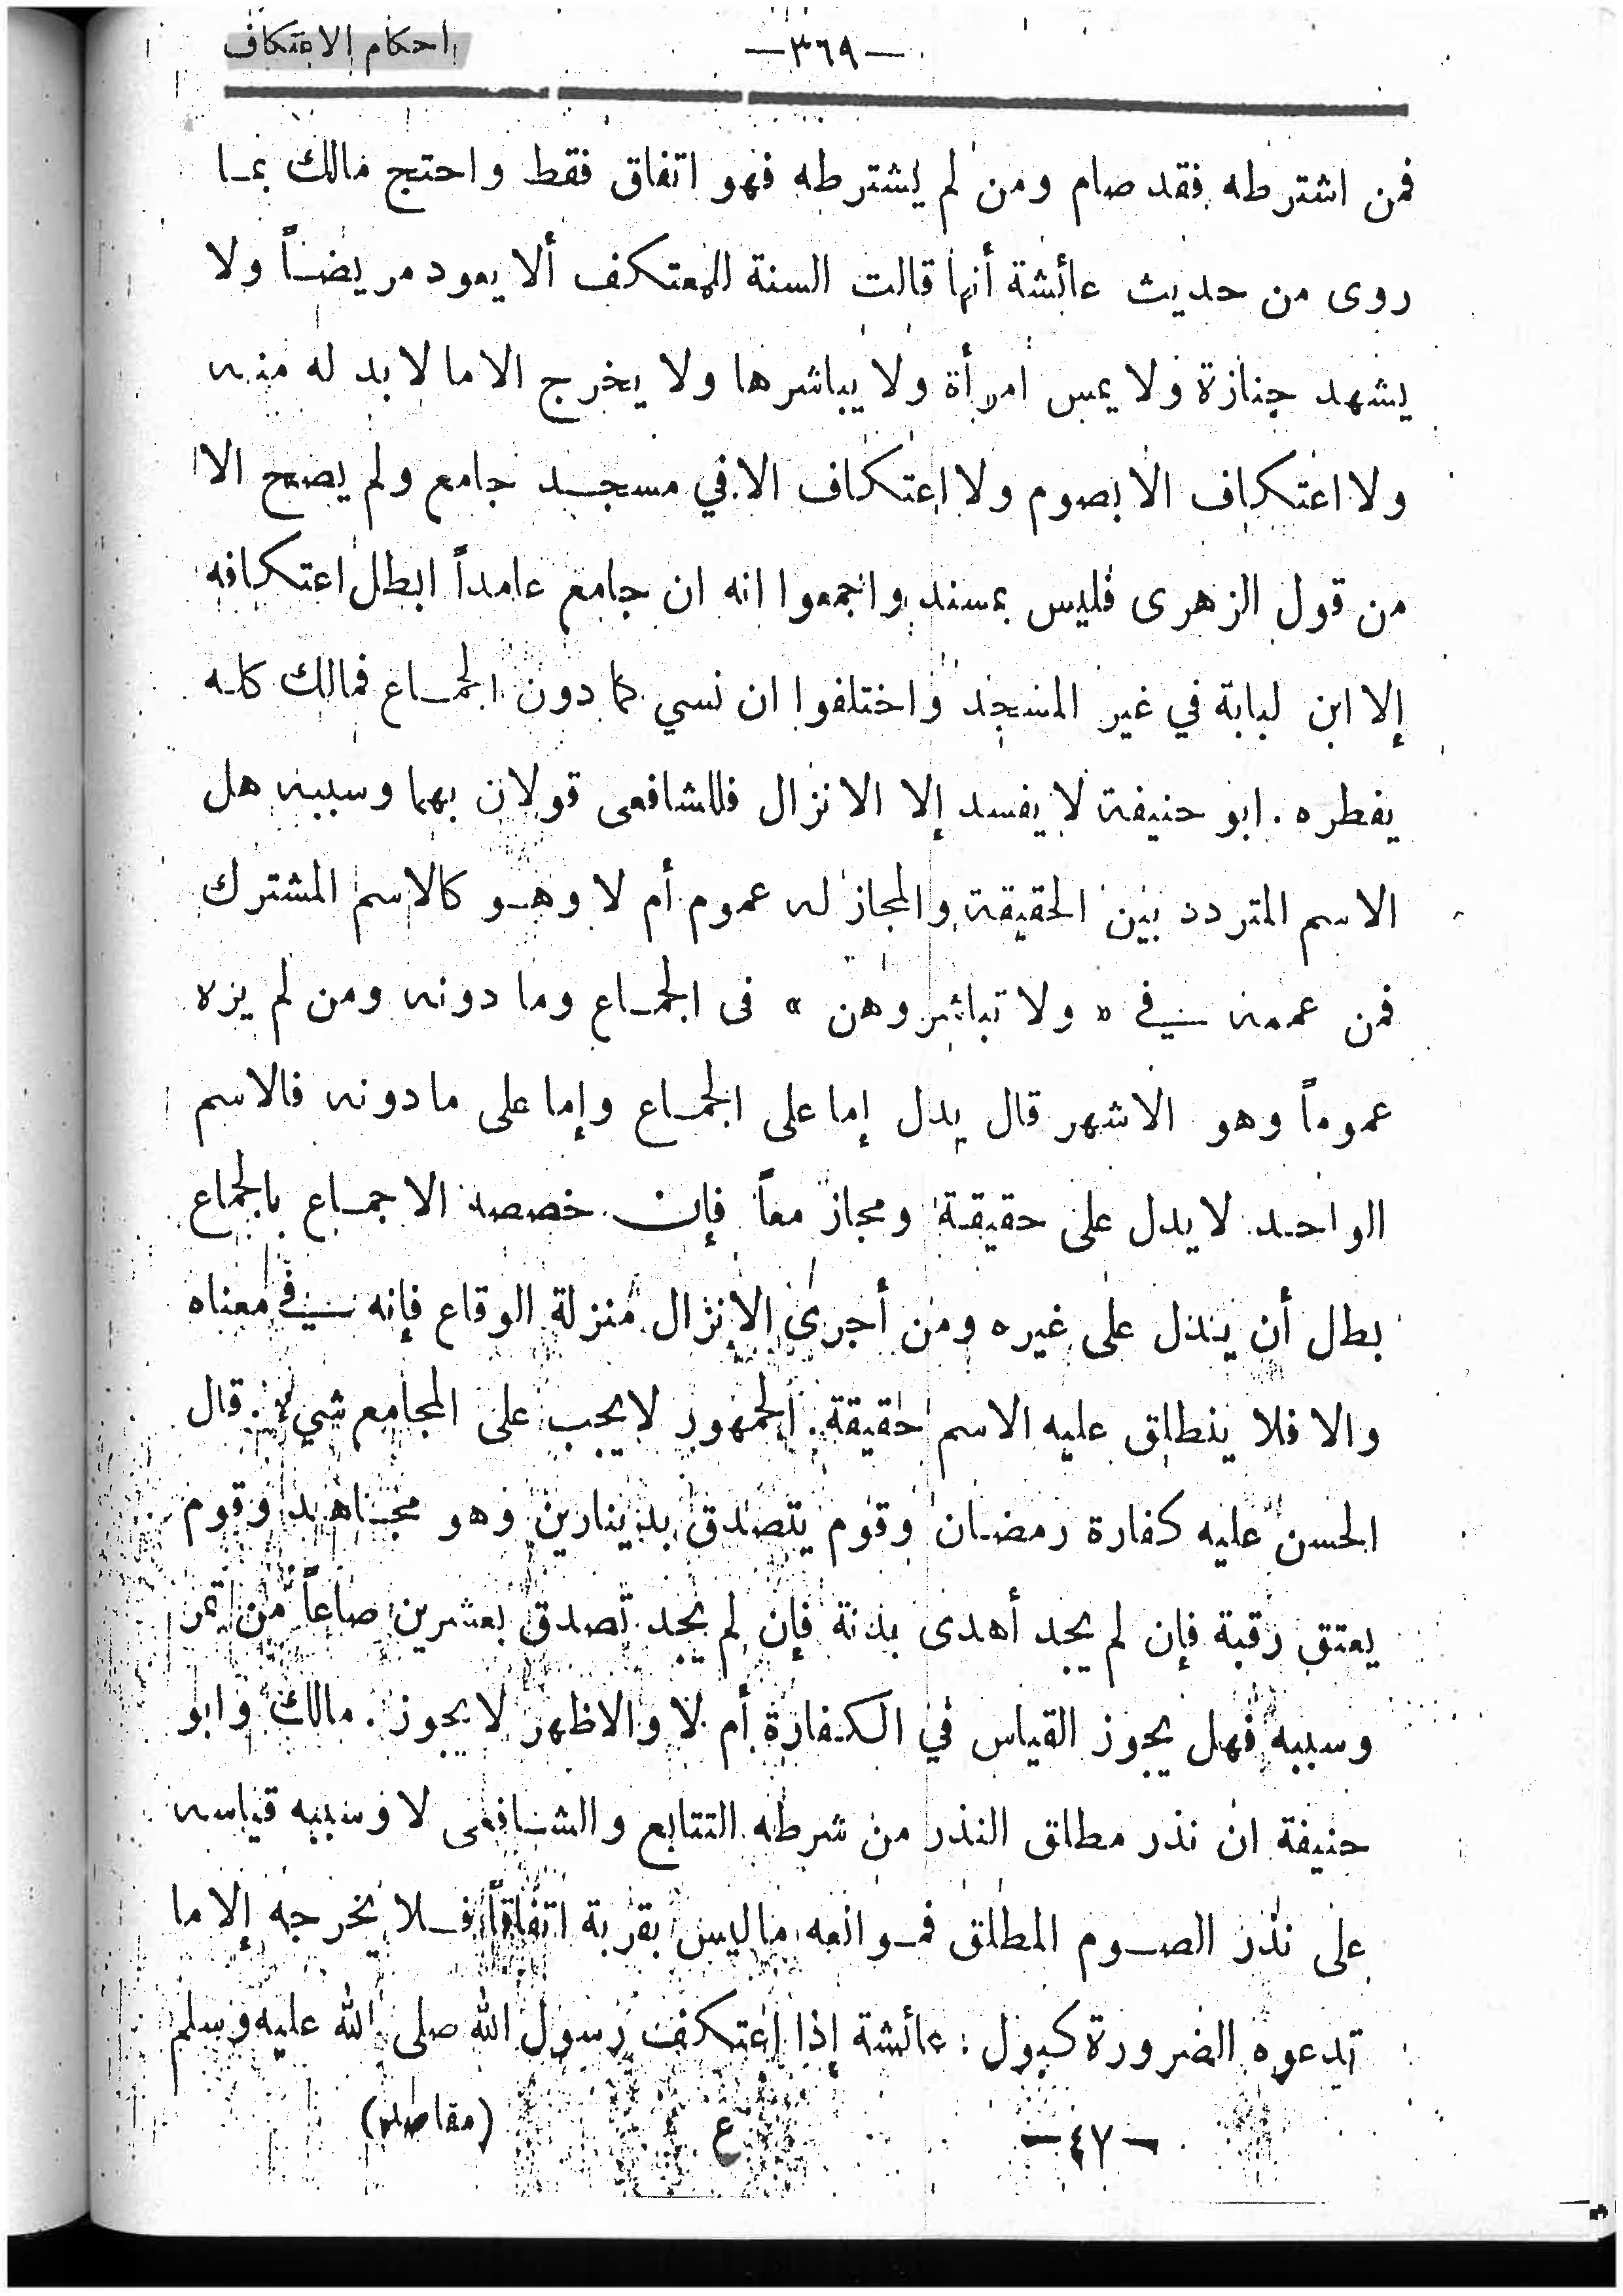 احكام الاعتكاف
—٣٦٩—
فمن اشترطه فقد صام ومن لم يشترطه فهو اتفاق فقط واحتج مالك بما
روى من حديث عائشة أنها قالت السنة للمعتكف ألا يعود مريضاً ولا
يشهد جنازة ولا يمس امرأة ولا يباشرها ولا يخرج الا ما لا بد له منه
ولا اعتكاف الا بصوم ولا اعتكاف الا في مسجد جامع ولم يصح الا
من قول الزهرى فليس بمسند واجمعوا انه ان جامع عامداً ابطل اعتكافه
إلا ابن لبابة في غير المسجد واختلفوا ان نسي كما دون الجماع فمالك كله
يفطره . ابو حنيفة لا يفسد إلا الانزال فللشافعى قولان بهما وسببه هل
الاسم المتردد بين الحقيقة والمجاز له عموم أم لا وهو كالاسم المشترك
فمن عممه في « ولا تباشروهن » فى الجماع وما دونه ومن لم يره
عموماً وهو الاشهر قال يدل إما على الجماع وإما على ما دونه فالاسم
الواحد لا يدل على حقيقة ومجاز معاً فإن خصصه الاجماع بالجماع
بطل أن يندل على غيره ومن أجرى الانزال منزلة الوقاع فإنه في معناه
والا فلا ينطلق عليه الاسم حقيقة . الجمهور لا يجب على المجامع شيء . قال
الحسن عليه كفارة رمضان وقوم يتصدق بدينارين وهو مجاهد وقوم
يعتق رقبة فإن لم يجد أهدى بدنة فإن لم يجد تصدق بعشرين صاعاً من تمر
وسببه فهل يجوز القياس في الكفارة أم لا والاظهر لا يجوز . مالك وابو
حنيفة ان نذر مطلق النذر من شرطه التتابع والشافعى لا وسببه قياسه
على نذر الصوم المطلق فموانعه ما ليس بقربة اتفاقاً فلا يخرجه إلا ما
تدعوه الضرورة كبول : عائشة إذا اعتكف رسول الله صلى الله عليه وسلم
—٤٧— ع (مقاصد)